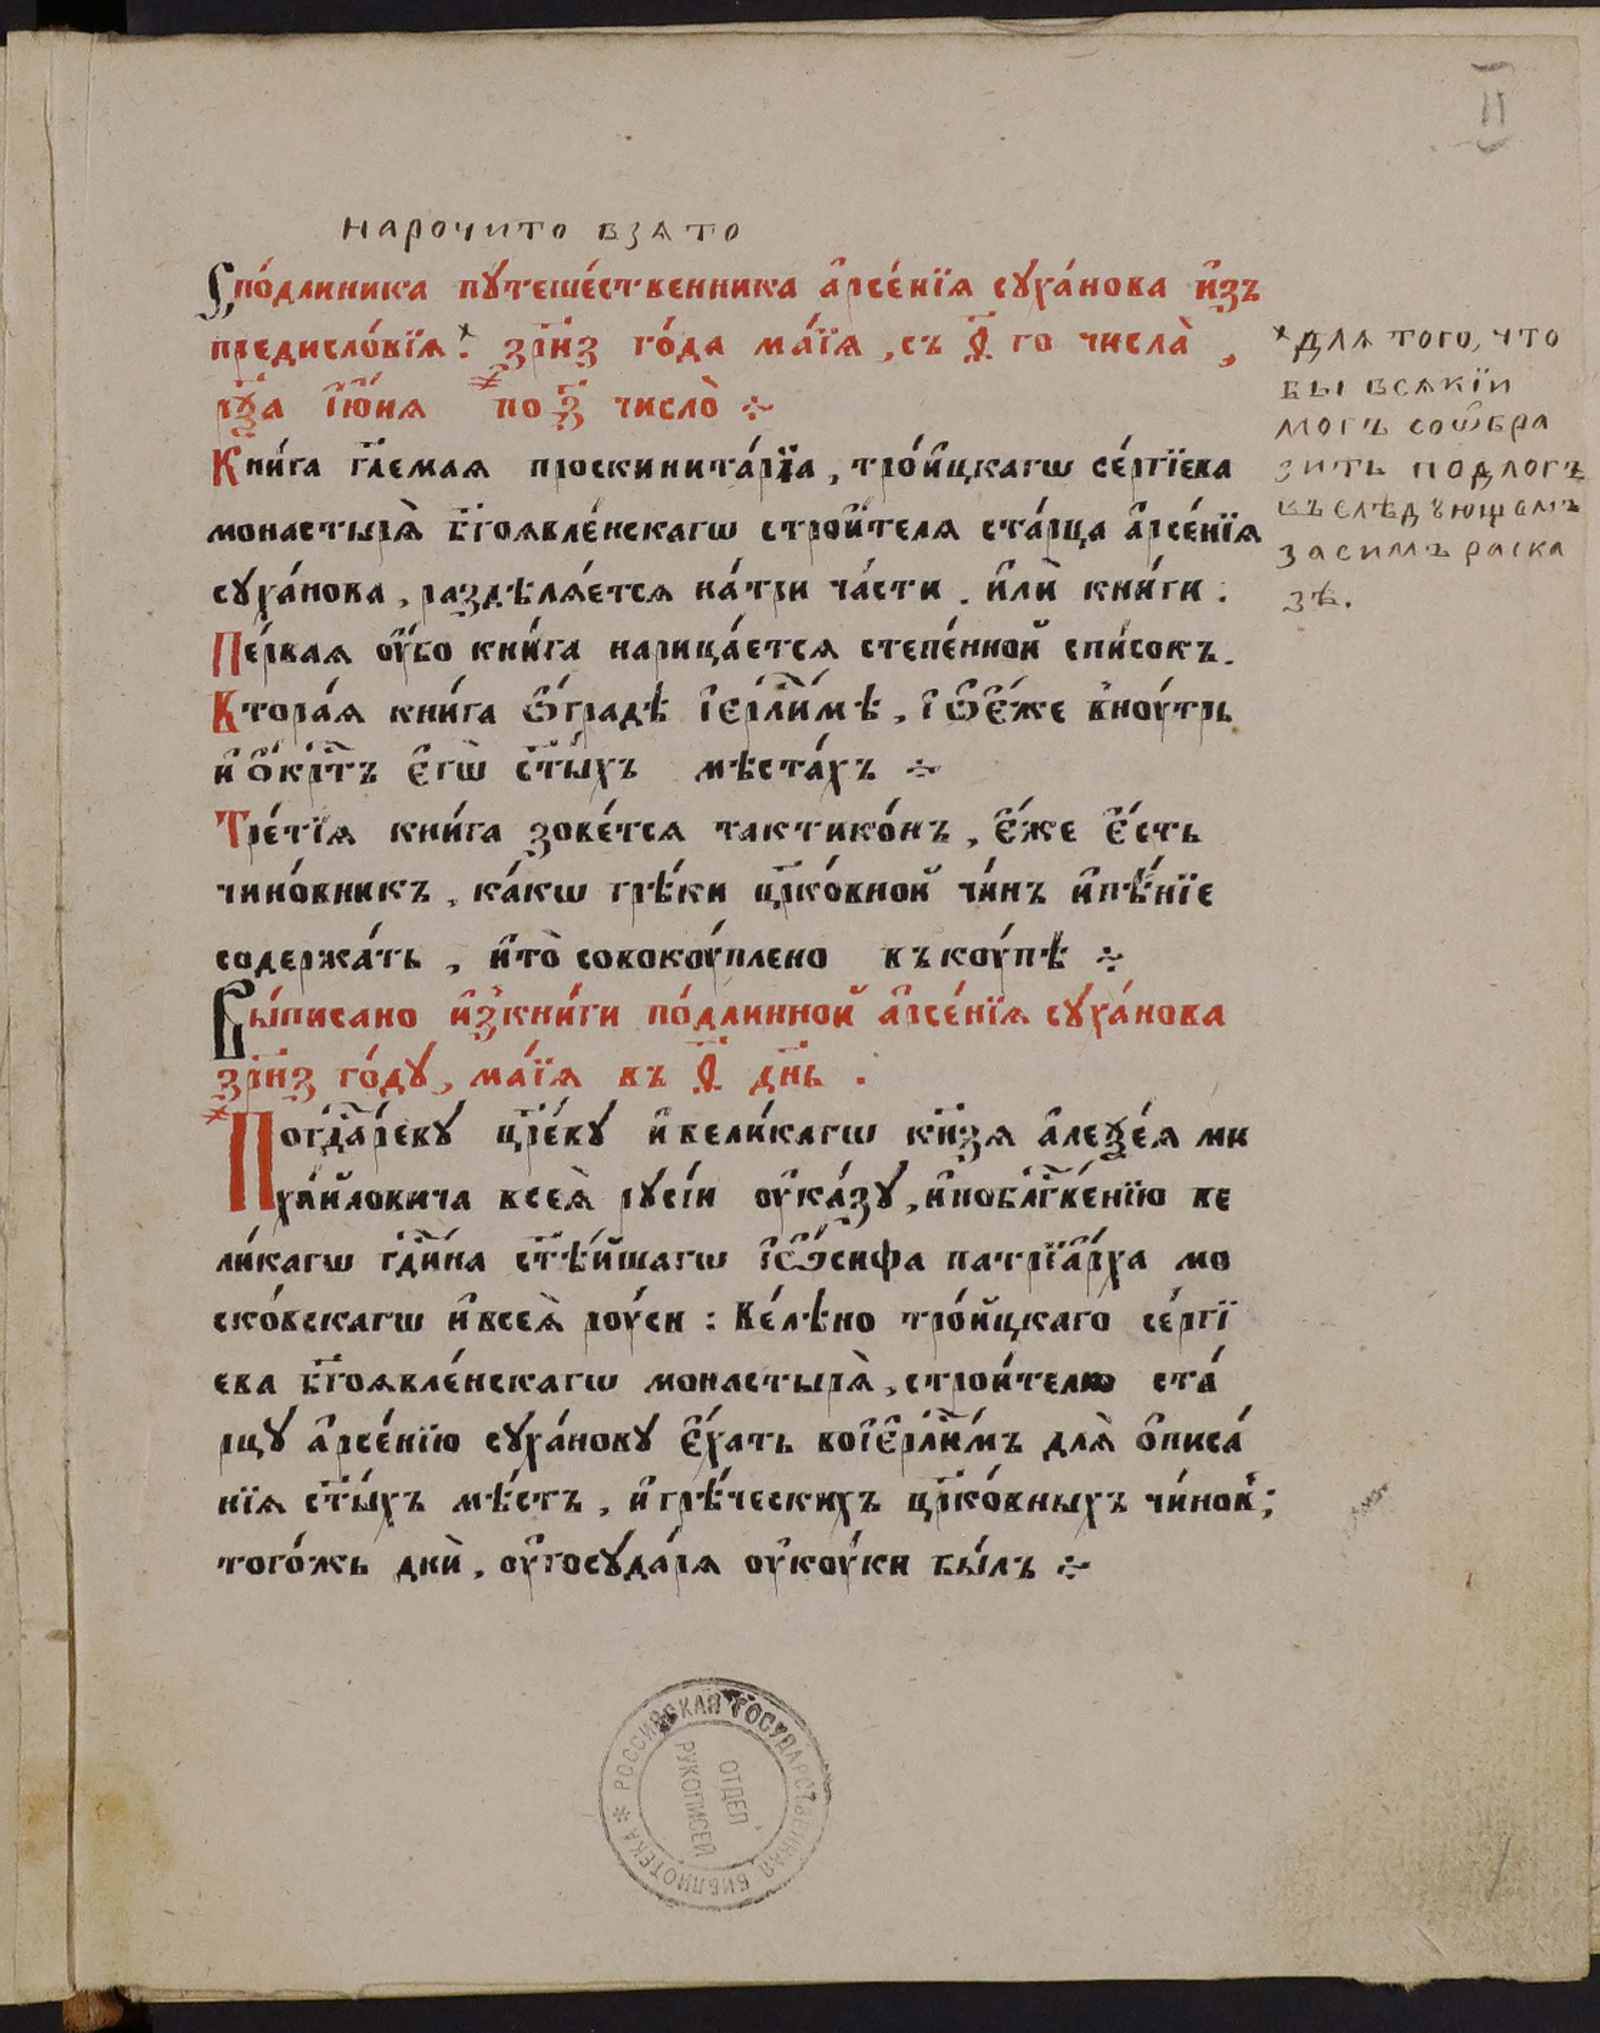 нарочито взѧто
Спо́длиника пꙋтеше́ственника а҆рсе́нїѧ сꙋха́нова и҆зъ
предисло́вїѧ. ҂зрн҃з го́да ма́їѧ, съ ѳ҃ го числа̀,
рѯ҃а і҆ю́нѧ по з҃ число̀ ⁘
Кни́га гл҃емаѧ проскинита́рїа, тро́йцкагѡ се́ргїева
монастырѧ̀ бг҃оѧвле́нскагѡ строи́телѧ ста́рца а҆рсе́нїѧ
сꙋха́нова, раздѣлѧ́етсѧ на́три ча́сти. и҆лѝ кни́ги.
Пе́рваѧ ᲂу҆́бо кни́га нарица́етсѧ степе́нной спи́сокъ.
Втора́ѧ кни́га ѽ гра́дѣ і҆ерⷭ҇ли́мѣ, і҆ ѽ е҆́же внᲂу́трь
и҆ ѻ҆́крⷭ҇тъ е҆гѡ̀ ст҃ы́хъ мѣста́хъ ⁘
Тре́тїѧ кни́га зове́тсѧ тактико́нъ, е҆́же е҆́сть
чино́вникъ, ка́кѡ грѣ́ки цр҃ко́вной чи́нъ и҆пѣ́нїе
содержа́ть, и҆то̀ совокᲂу́плено въкᲂу́пѣ ⁘
Вы́писано и҆зкни́ги по́длинной а҆рсе́нїѧ сꙋха́нова
҂зрн҃з го́дꙋ, ма́їѧ въ ѳ҃ дн҃ь.
Погдⷭ҇а́ревꙋ цр҃е́вꙋ и҆вели́кагѡ кн҃зѧ а҆леѯе́ѧ ми
ха́йловича всеѧ̀ рꙋсі́и ᲂу҆ка́зꙋ, и҆поблⷭ҇ве́нїю ве
ли́кагѡ гдⷭ҇и́на ст҃ѣ́йшагѡ і҆ѽсифа патрїа́рха мо
ско́вскагѡ и҆всеѧ̀ рᲂу́си: Ве́лѣно тро́йцкаго се́ргї
ева бг҃оѧвле́нскагѡ монастырѧ̀, строи́телю ста́
рцꙋ а҆рсе́нїю сꙋха́новꙋ е҆́хать воі҆ерⷭ҇ли́мъ длѧ̀ ѻ҆писа́
нїѧ ст҃ы́хъ мѣ́стъ, и҆грѣ́ческихъ цр҃ко́вныхъ чи́нов;
того́жь днѝ, ᲂу҆госꙋда́рѧ ᲂу҆рᲂу́ки бы́лъ ⁘
длѧ того, что
бы всѧкїи
могъ соѡбра
зить подлогъ
въ слѣдꙋющемъ
за симъ раска
зѣ.
РОССИЙСКАЯ ГОСУДАРСТВЕННАЯ БИБЛИОТЕКА *
ОТДЕЛ
РУКОПИСЕЙ